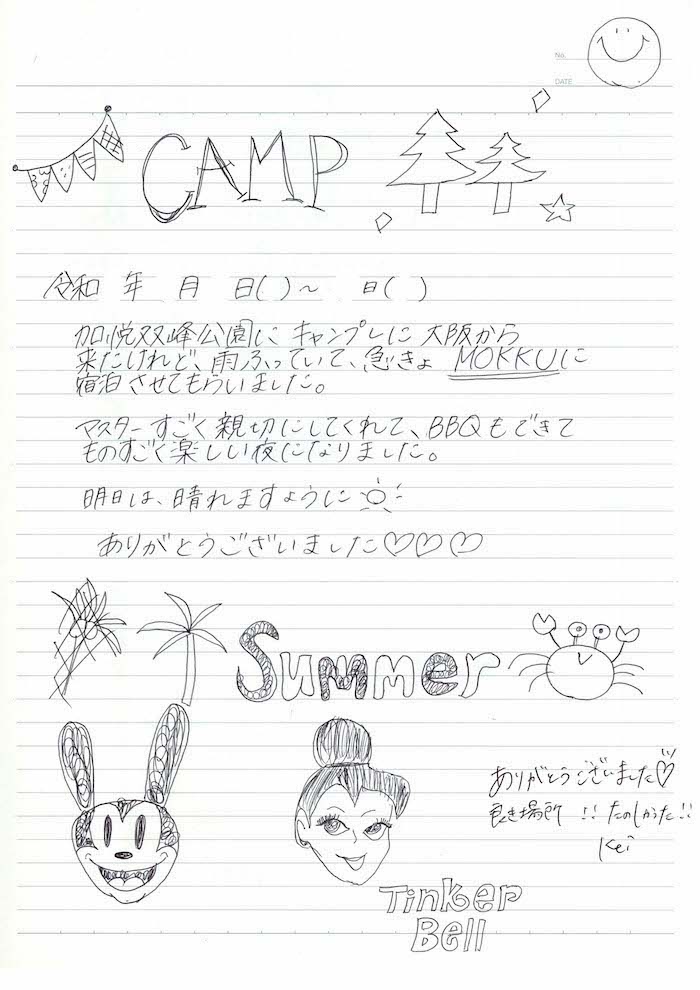 No.
DATE
CAMP
令和 年 月 日( )〜 日( )
加悦双峰公園に キャンプしに 大阪から
来たけれど、雨ふっていて、急きょ MOKKUに
宿泊させてもらいました。
マスターすごく親切にしてくれて、BBQもできて
ものすごく楽しい夜になりました。
明日は、晴れますように
ありがとうございました♡♡♡
Summer
ありがとうございました♡
良き場所!! たのしかった!!
Kei
Tinker
Bell